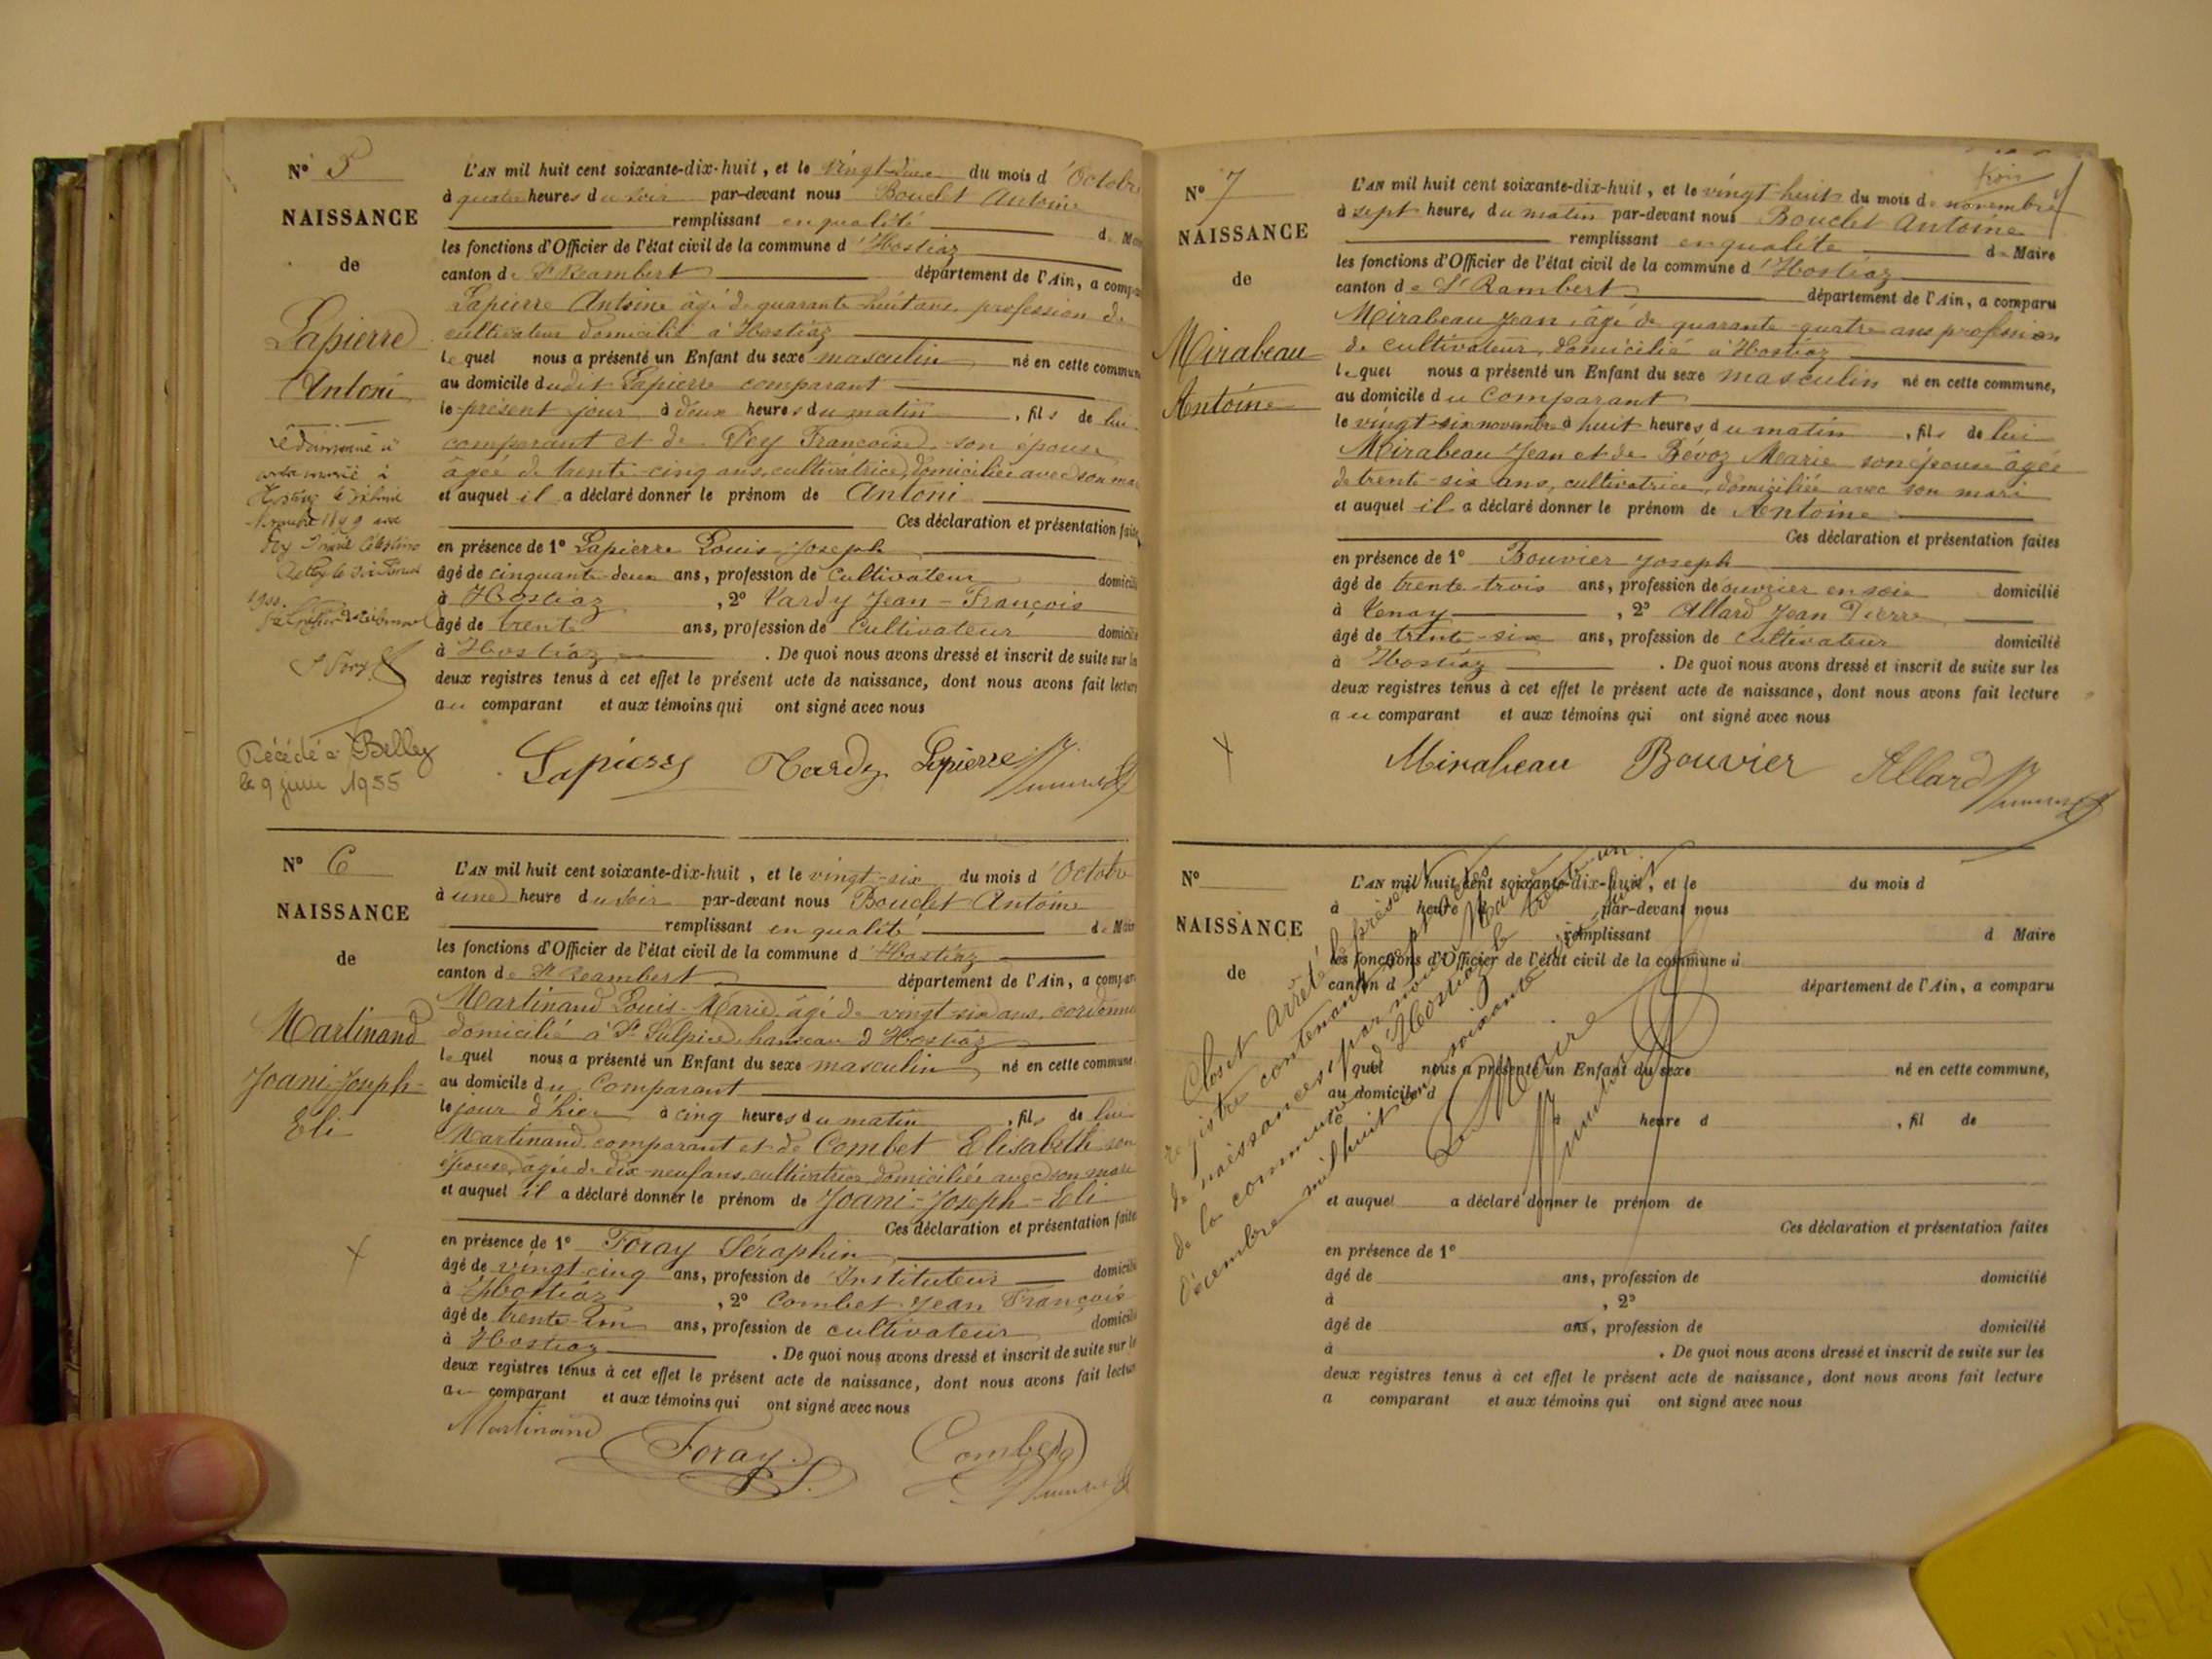 N° 5
NAISSANCE
de
Lapierre
Antoni
Décédé à Belley
le 9 juin 1955
L'AN mil huit cent soixante-dix-huit, et le vingt-deux du mois d'Octobre
à quatre heures du soir par-devant nous Bouclet Antoine
remplissant en qualité de Maire
les fonctions d'Officier de l'état civil de la commune d'Hostiaz
canton de St Reambert département de l'Ain, a comparu
Lapierre Antoine âgé de quarante huit ans, profession de
cultivateur domicilié à Hostiaz
lequel nous a présenté un Enfant du sexe masculin né en cette commune
au domicile dudit Lapierre comparant
le présent jour à deux heures du matin, fils de lui
comparant et de Pey Françoise son épouse
âgée de trente-cinq ans, cultivatrice, domiciliée avec son mari
et auquel il a déclaré donner le prénom de Antoni
Ces déclaration et présentation faites
en présence de 1° Lapierre Louis Joseph
âgé de cinquante-deux ans, profession de Cultivateur domicilié
à Hostiaz, 2° Tardy Jean-François
âgé de trente ans, profession de Cultivateur domicilié
à Hostiaz. De quoi nous avons dressé et inscrit de suite sur les
deux registres tenus à cet effet le présent acte de naissance, dont nous avons fait lecture
au comparant et aux témoins qui ont signé avec nous
Lapierre Tardy Lapierre
N° 6
NAISSANCE
de
Martinand
Joani-Joseph-
Eli
L'AN mil huit cent soixante-dix-huit, et le vingt-six du mois d'Octobre
à une heure du soir par-devant nous Bouclet Antoine
remplissant en qualité de Maire
les fonctions d'Officier de l'état civil de la commune d'Hostiaz
canton de St Reambert département de l'Ain, a comparu
Martinand Louis-Marie, âgé de vingt-six ans, cordonnier
domicilié à St Sulpice, hameau d'Hostiaz
lequel nous a présenté un Enfant du sexe masculin né en cette commune
au domicile du Comparant
le jour d'hier à cinq heures du matin, fils de lui
Martinand comparant et de Combet Elisabeth son
épouse, âgée de dix-neuf ans, cultivatrice, domiciliée avec son mari
et auquel il a déclaré donner le prénom de Joani-Joseph-Eli
Ces déclaration et présentation faites
en présence de 1° Foray Séraphin
âgé de vingt-cinq ans, profession de Instituteur domicilié
à Hostiaz, 2° Combet Jean François
âgé de trente-un ans, profession de cultivateur domicilié
à Hostiaz. De quoi nous avons dressé et inscrit de suite sur les
deux registres tenus à cet effet le présent acte de naissance, dont nous avons fait lecture
au comparant et aux témoins qui ont signé avec nous
Martinand Foray S. Combet
trois
N° 7
NAISSANCE
de
Mirabeau
Antoine
L'AN mil huit cent soixante-dix-huit, et le vingt huit du mois de novembre
à sept heures du matin par-devant nous Bouclet Antoine
remplissant en qualité de Maire
les fonctions d'Officier de l'état civil de la commune d'Hostiaz
canton de St Rambert département de l'Ain, a comparu
Mirabeau Jean, âgé de quarante-quatre ans profession
de cultivateur, domicilié à Hostiaz
lequel nous a présenté un Enfant du sexe masculin né en cette commune,
au domicile du Comparant
le vingt-six novembre à huit heures du matin, fils de lui
Mirabeau Jean et de Bévoz Marie son épouse âgée
de trente-six ans, cultivatrice, domiciliée avec son mari
et auquel il a déclaré donner le prénom de Antoine
Ces déclaration et présentation faites
en présence de 1° Bouvier Joseph
âgé de trente-trois ans, profession de ouvrier en soie domicilié
à Tenay, 2° Allard Jean Pierre
âgé de trente-six ans, profession de cultivateur domicilié
à Hostiaz. De quoi nous avons dressé et inscrit de suite sur les
deux registres tenus à cet effet le présent acte de naissance, dont nous avons fait lecture
au comparant et aux témoins qui ont signé avec nous
Mirabeau Bouvier Allard
N°
NAISSANCE
de
L'AN mil huit cent soixante-dix-huit, et le du mois d
à heure d par-devant nous
remplissant d Maire
les fonctions d'Officier de l'état civil de la commune d
canton d département de l'Ain, a comparu
l quel nous a présenté un Enfant du sexe né en cette commune,
au domicile d
le à heure d, fil de
et auquel a déclaré donner le prénom de
Ces déclaration et présentation faites
en présence de 1°
âgé de ans, profession de domicilié
à, 2°
âgé de ans, profession de domicilié
à. De quoi nous avons dressé et inscrit de suite sur les
deux registres tenus à cet effet le présent acte de naissance, dont nous avons fait lecture
a comparant et aux témoins qui ont signé avec nous
Clos et Arrêté le présent
registre contenant sept actes
de naissances par nous Maire
de la commune d'Hostiaz le trente-un
Décembre mil huit cent soixante dix huit
Le Maire